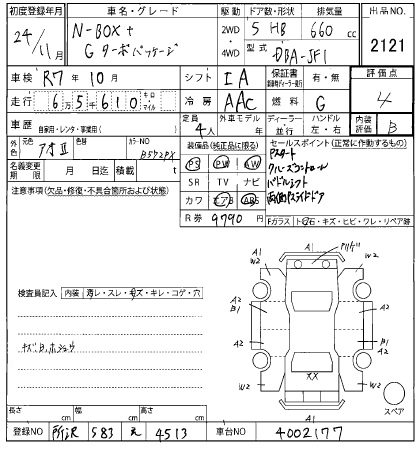 初度登録年月 車名・グレード 駆動 ドア数・形状 排気量 出品NO.
24/11月 N-BOX+ 2WD 5 HB 660 cc 2121
Gターボパッケージ 4WD 型式 DBA-JF1
車検 R7年10月 シフト IA 保証書 有・無 評価点
走行 6万5千610 キロ マイル 冷房 AAC 燃料 G 4
車歴 自家用・レンタ・事業用( ) 定員 4人 外車モデル 年 ディーラー 並行 ハンドル 左・右 内装評価 B
外色 元色 アオII 色替 カラーNO B592PX 装備品(純正品に限る) セールスポイント(正常に作動するもの)
名義変更期限 月 日迄 積載 t PS PW AW Pスタート
クルーズコントロール
注意事項(欠品・修復・不具合箇所および状態) SR TV ナビ パドルシフト
カワ エアB ABS 両側Pスライドドア
R券 9790 円 Fガラス トビ石・キズ・ヒビ・ワレ・リペア跡
A1
W2
A1
W2
検査員記入 内装 汚レ・スレ・キズ・キレ・コゲ・穴
A2
B1
A2
A2
B1
A2
XX
W2
W2
A1
スペア
長さ cm 幅 cm 高さ cm
登録NO 所沢 583 え 4513 車台NO 4002177